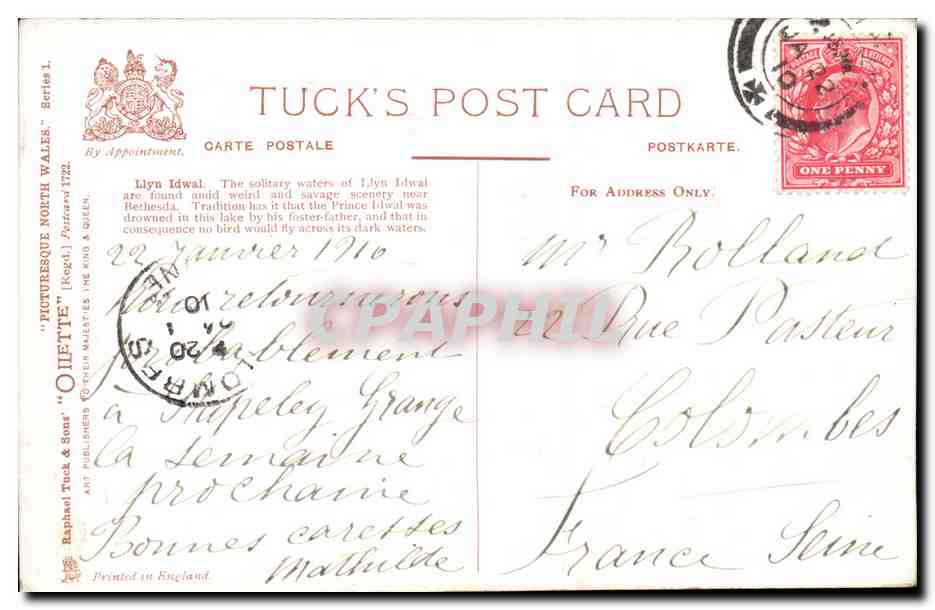 TUCK'S POST CARD
By Appointment.
CARTE POSTALE
POSTKARTE.
FOR ADDRESS ONLY.
Llyn Idwal. The solitary waters of Llyn Idwal
are found amid weird and savage scenery near
Bethesda. Tradition has it that the Prince Idwal was
drowned in this lake by his foster-father, and that in
consequence no bird would fly across its dark waters.
22 Janvier 1910
Nous retournerons
probablement
à Stapeley Grange
la semaine
prochaine
Bonnes caresses
Mathilde
Mr Rolland
22 Rue Pasteur
Colombes
France Seine
"PICTURESQUE NORTH WALES." Series 1.
Raphael Tuck & Sons' "OILETTE" [Regd.] Postcard 1722.
ART PUBLISHERS TO THEIR MAJESTIES THE KING & QUEEN.
Printed in England.
POSTAGE REVENUE
ONE PENNY
JA 22
10
COLOMBES
20
10
CPAPHIL